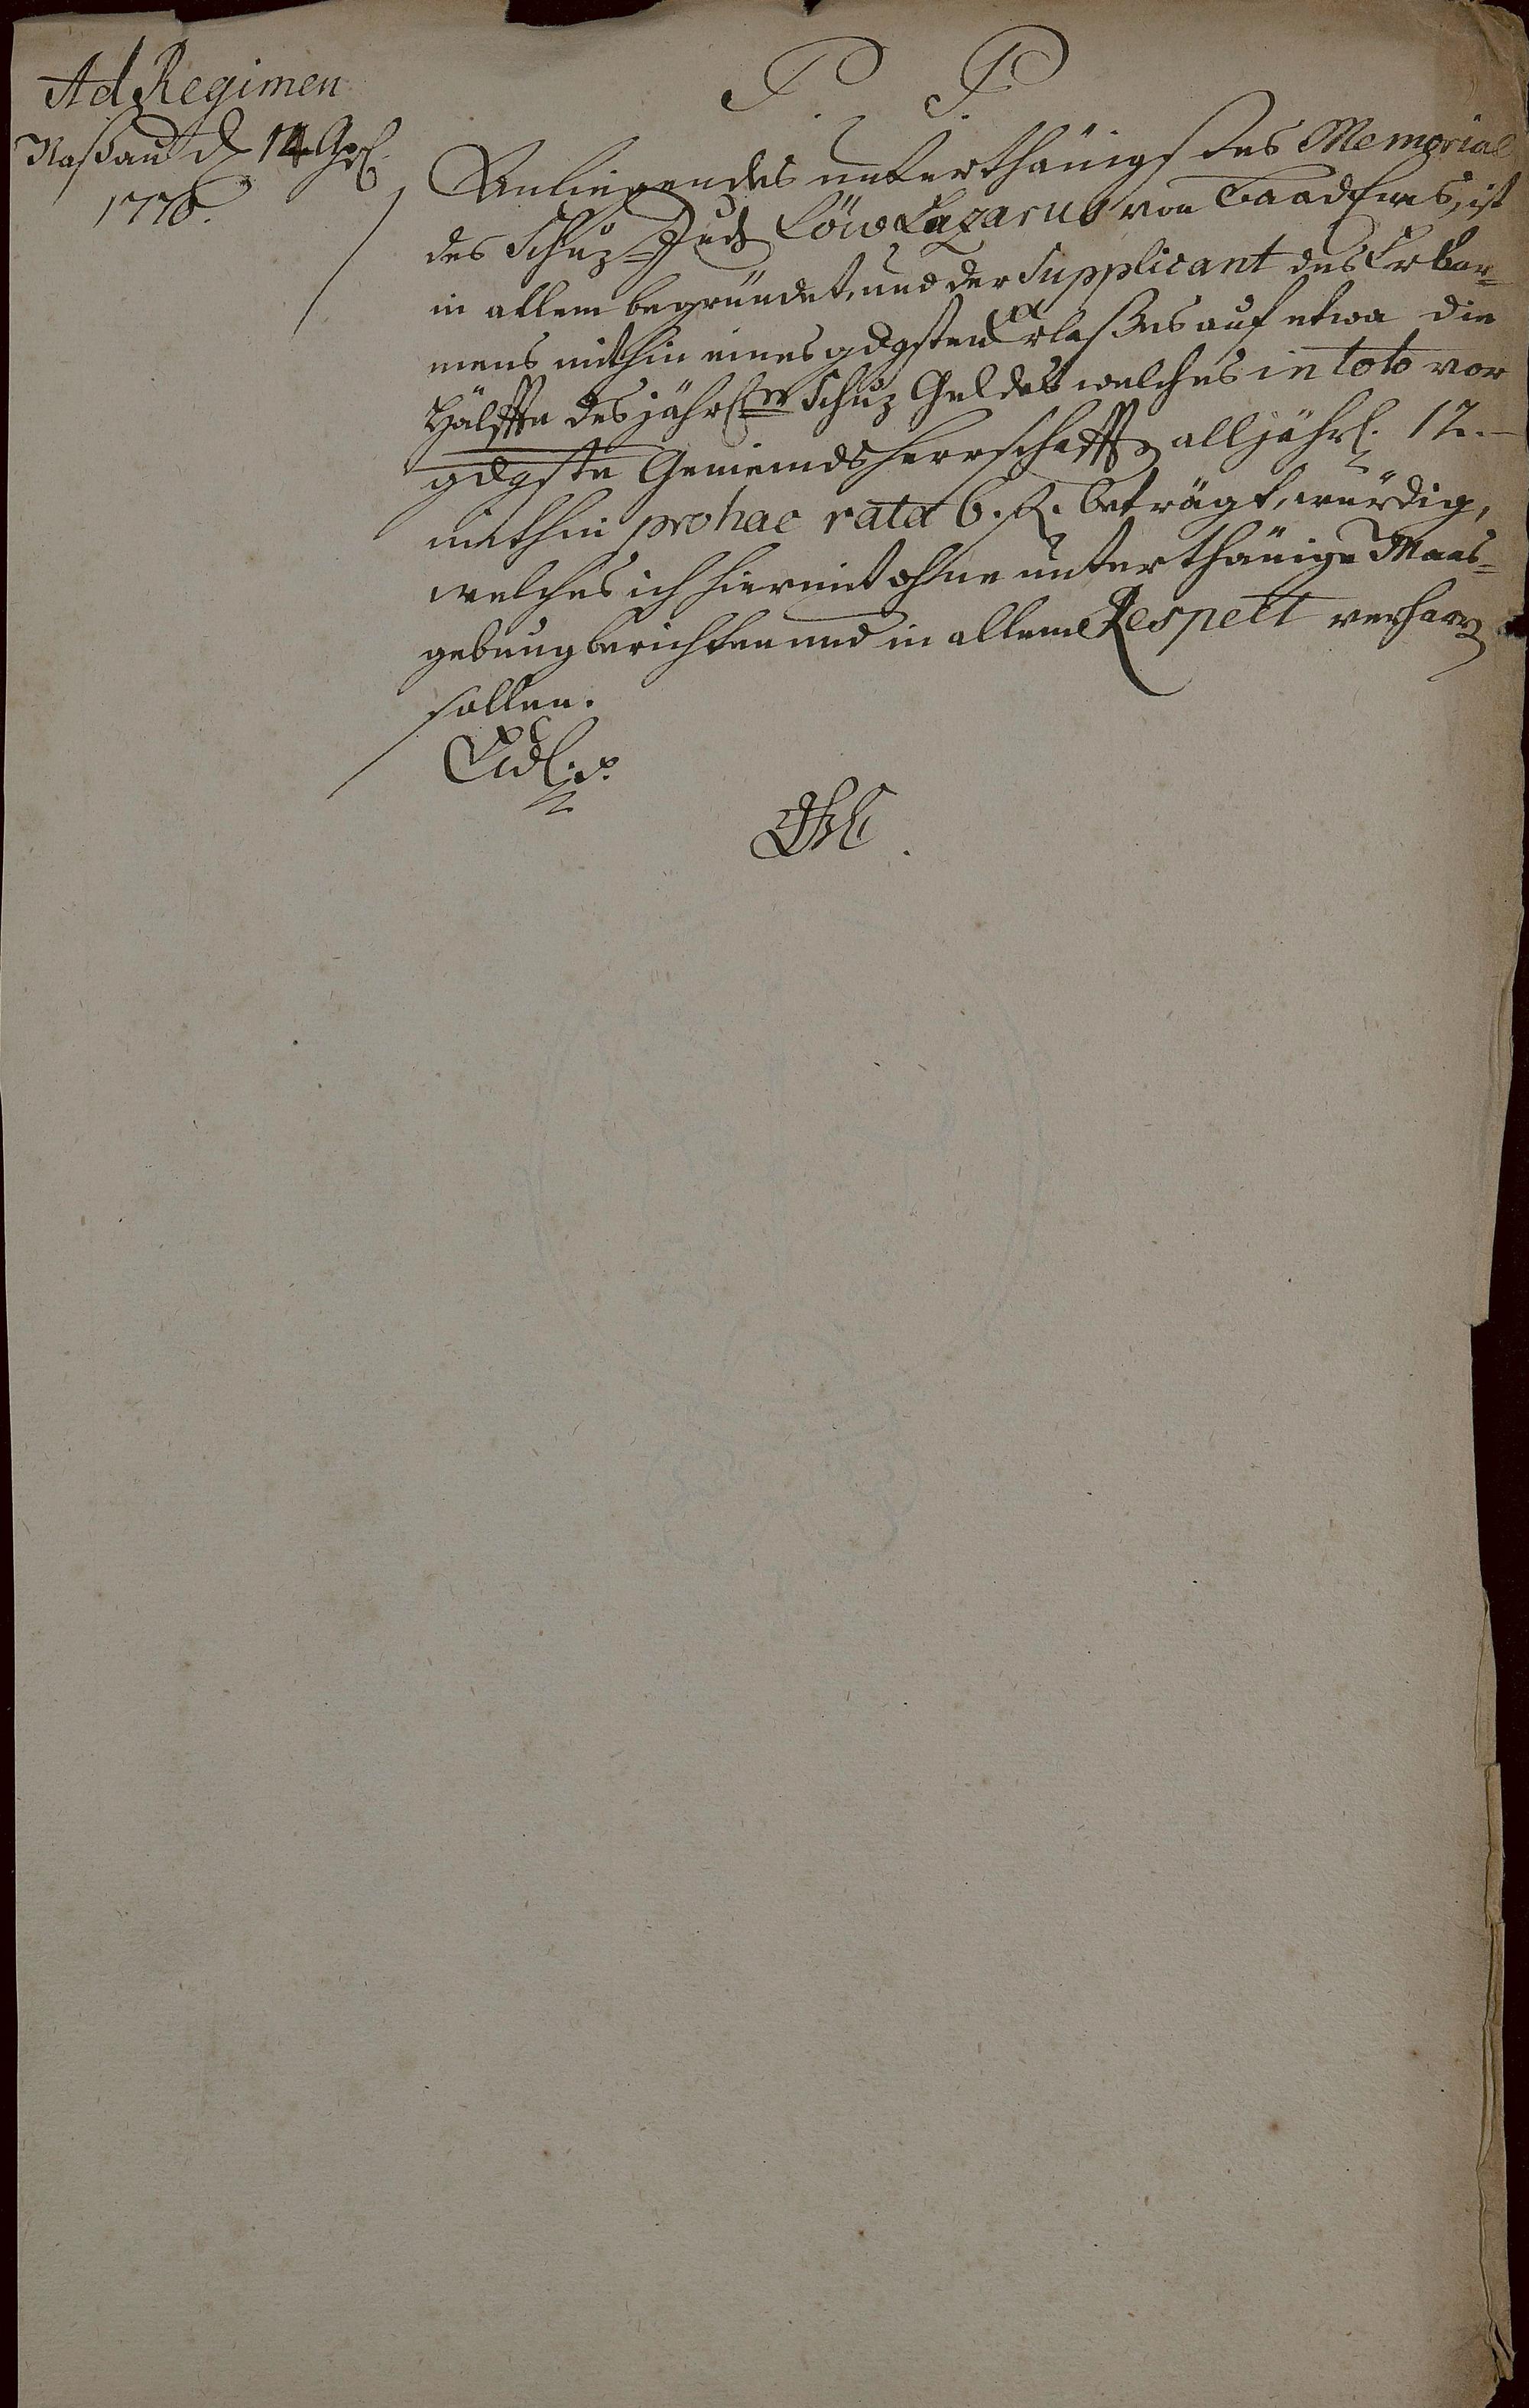 Ad Regimen
Naßau d 14 Apr.
1778.
P. P.
Anliegendes unterthänigstes Memorial
des Schuz-Jud Löw Lazarus von Baad Ems, ist
in allem begründet, und der Supplicant des Erbar=
mens mithin eines gdgsten Erlaßes auf etwa die
Hälffte des jährl. Schuz Geldes welches in toto vor
gdgste Gemeindsherrschafft alljährl. 12.—
mithin pro hac rata 6. fl. beträgt, würdig,
welches ich hiermit ohne unterthänige Maas=
gebung berichten und in allem Respect verharren
sollen.